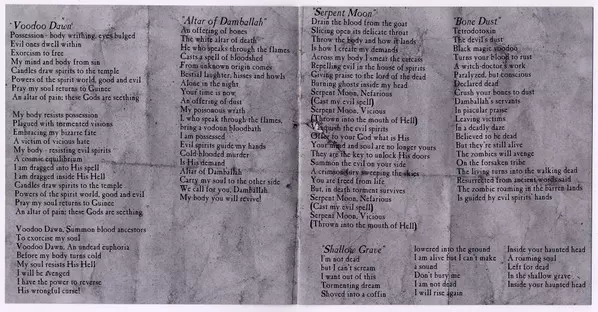 "Voodoo Dawn"
Possession - body writhing, eyes bulged
Evil ones dwell within
Exorcism to free
My mind and body from sin
Candles draw spirits to the temple
Powers of the spirit world, good and evil
Pray my soul returns to Guinee
An altar of pain; these Gods are seething
My body resists possession
Plagued with tormented visions
Embracing my bizarre fate
A victim of vicious hate
My body - resisting evil spirits
A cosmic equilibrium
I am dragged into His spell
I am dragged inside His Hell
Candles draw spirits to the temple
Powers of the spirit world, good and evil
Pray my soul returns to Guinee
An altar of pain; these Gods are seething
Voodoo Dawn, Summon blood ancestors
To exorcise my soul
Voodoo Dawn, An undead euphoria
Before my body turns cold
My soul resists His Hell
I will be avenged
I have the power to reverse
His wrongful curse!
"Altar of Damballah"
An offering of bones
The white altar of death
He who speaks through the flames
Casts a spell of bloodshed
From unknown origin comes
Bestial laughter, hisses and howls
Alone in the night
Your time is now
An offering of dust
My poisonous wrath
I, who speak through the flames,
bring a vodoun bloodbath
I am possessed
Evil spirits guide my hands
Cold-blooded murder
Is His demand
Altar of Damballah
Carry my soul to the other side
We call for you, Damballah
My body you will revive!
"Serpent Moon"
Drain the blood from the goat
Slicing open its delicate throat
Throw the body and how it lands
Is how I create my demands
Across my body I smear the entrails
Repeling evil in the house of spirits
Giving praise to the lord of the dead
Burning ghosts inside my head
Serpent Moon, Nefarious
(Cast my evil spell)
Serpent Moon, Vicious
(Thrown into the mouth of Hell)
Vanquish the evil spirits
Offer to your God what is His
Your mind and soul are no longer yours
They are the key to unlock His doors
Summon the evil on your side
A crimson fury sweeping the skies
You are freed from life
But, in death torment survives
Serpent Moon, Nefarious
(Cast my evil spell)
Serpent Moon, Vicious
(Thrown into the mouth of Hell)
"Bone Dust"
Tetrodotoxin
The devil's dust
Black magic voodoo
Turns your blood to rust
A witch-doctor's work
Paralyzed, but conscious
Declared dead
Crush your bones to dust
Damballah's servants
In piacular praise
Leaving victims
In a deadly daze
Believed to be dead
But they're still alive
The zombies will avenge
On the forsaken tribe
The living turns into the walking dead
Resurrected from ancient words said
The zombie roaming in the barren lands
Is guided by evil spirits' hands
"Shallow Grave"
I'm not dead
but I can't scream
I want out of this
Tormenting dream
Shoved into a coffin
lowered into the ground
I am alive but I can't make
a sound
Don't bury me
I am not dead
I will rise again
Inside your haunted head
A roaming soul
Left for dead
In the shallow grave
Inside your haunted head